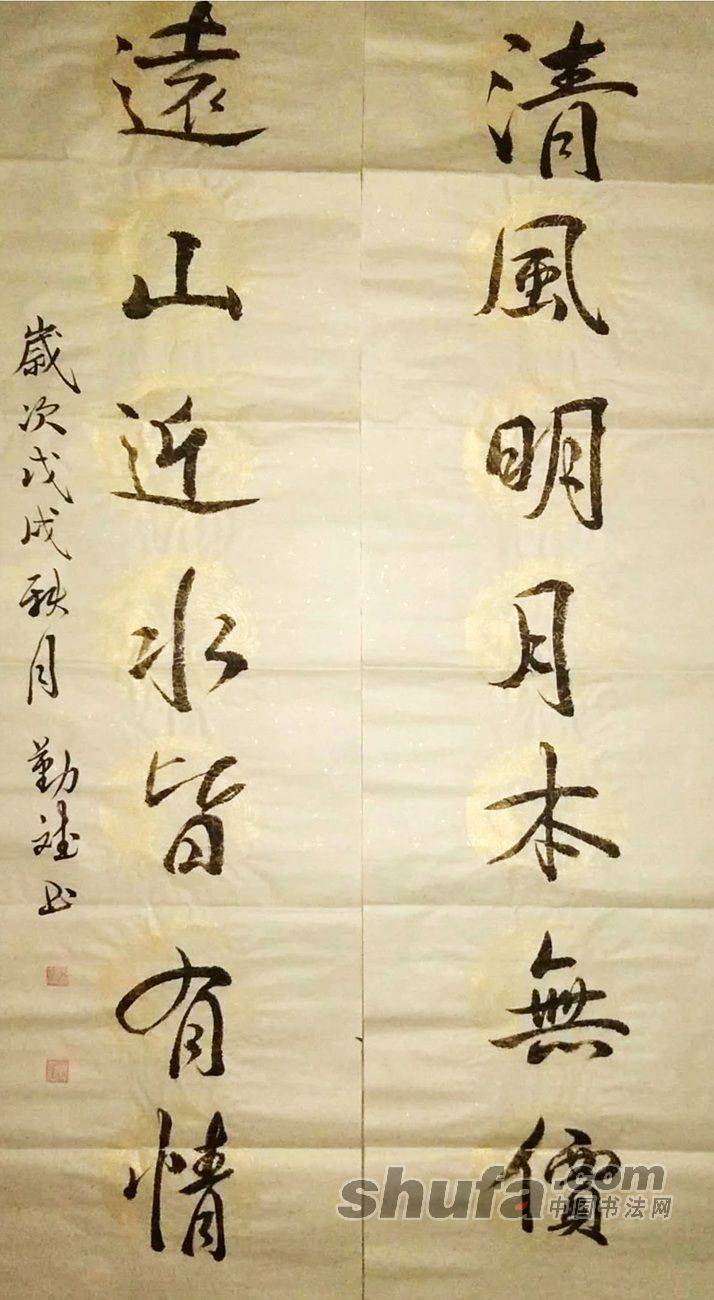 清風明月本無價
遠山近水皆有情
歲次戊戌秋月 勤
書
shufa.com
中国书法网